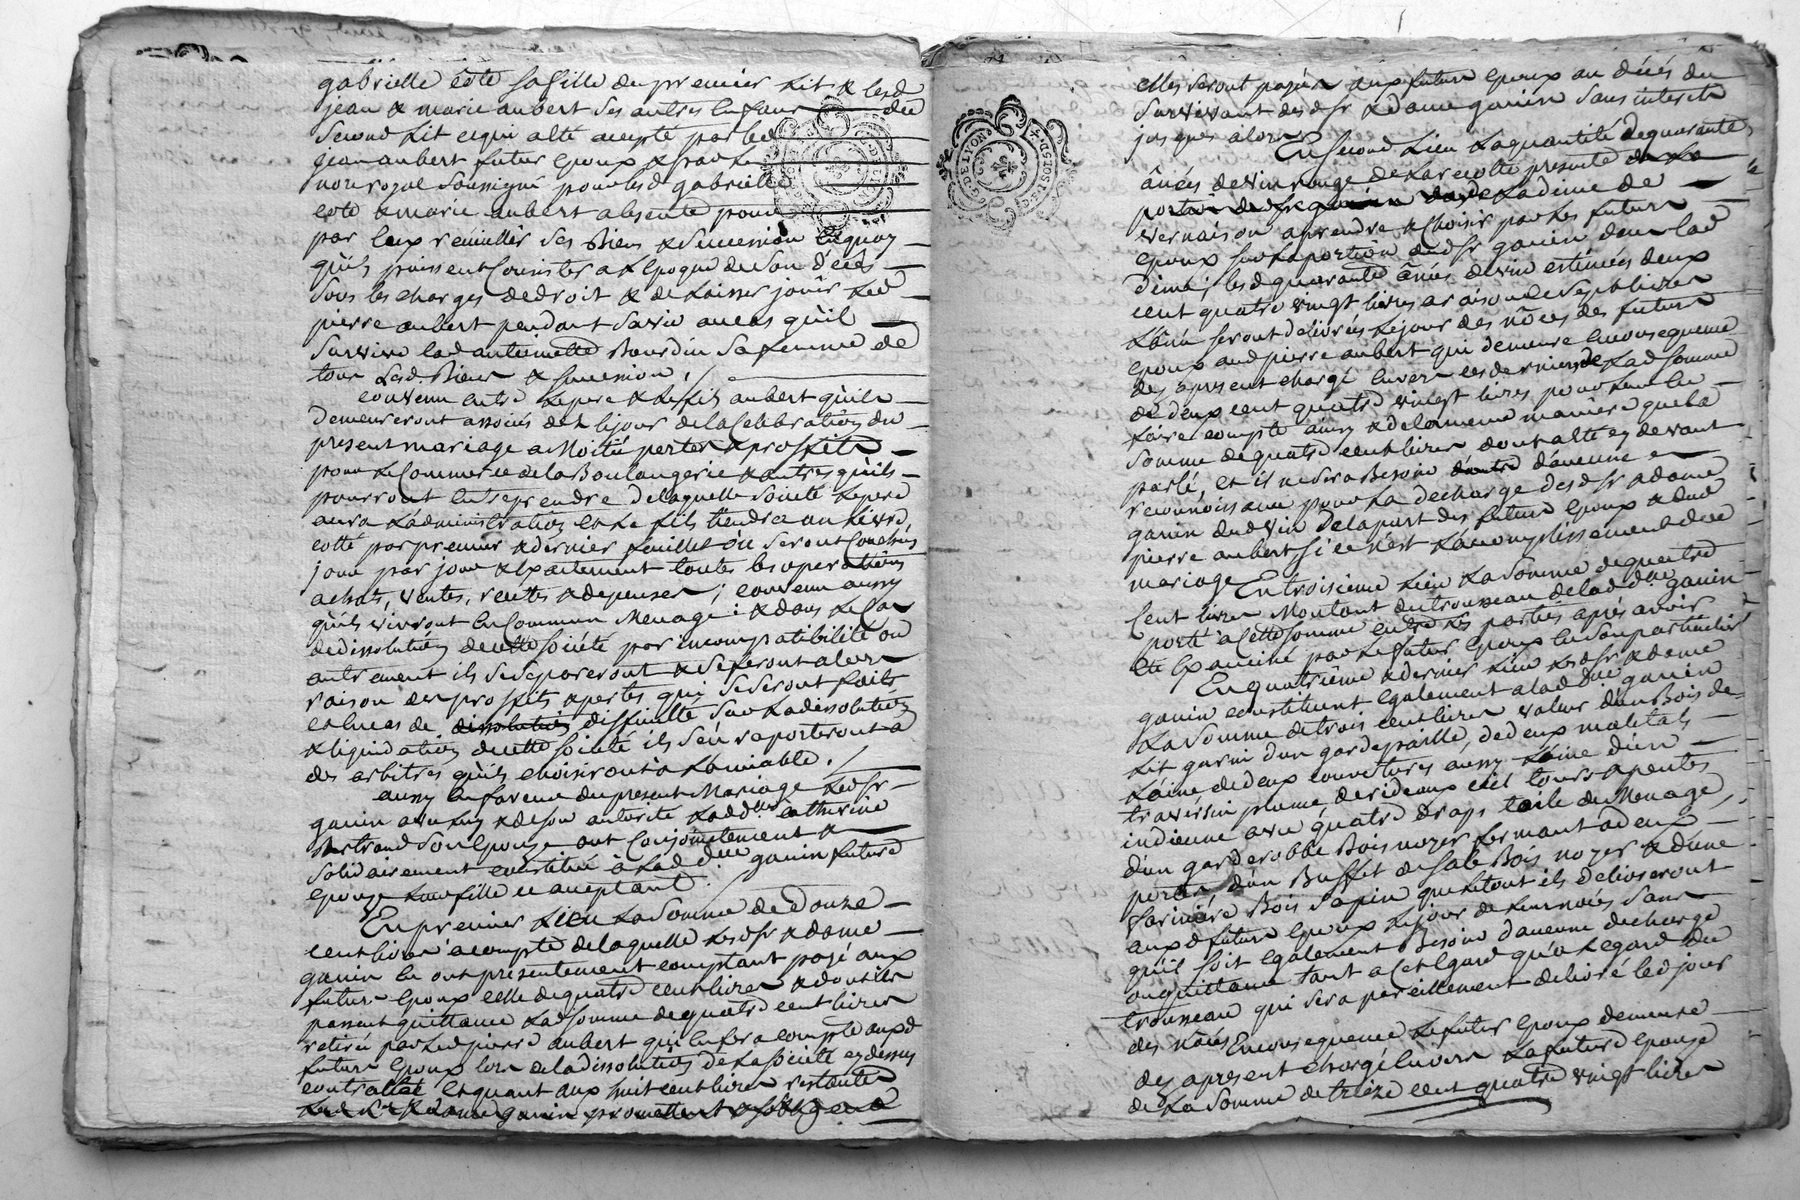 gabrielle cote sa fille du premier Lit & lesd
jean & marie aubert ses autres Enfans du
second Lit ce qui a été accepté par led
jean aubert futur Epoux &
no.re royal soussigné pour lesd gabrielle
cote & marie aubert absente pour
par Eux recueillir ses Biens & succession
qu'ils puissent Consister a L'Epoque de son décès
sous les charges de droit & de Laisser jouir Led
pierre aubert pendant sa vie au cas qu'il
survive lad antoinette Bourdin sa femme de
tous Lesd Biens & succession ./
convenu entre Le pere & Le fils aubert qu'ils
demeureront associés dez le jour de la Celebration du
present mariage a Moitié pertes & proffits
pour Le Commerce de la Boulangerie & autres qu'ils
pourront Entreprendre de laquelle Societé Le pere
aura L'administration et Le fils tiendra un Livre
cotté par premier & dernier feuillet où seront Couchés
jour par jour & Exactement toutes les operations
achats, ventes, recettes & depenses; convenu aussy
qu'ils vivront En Commun Menage: & dans Le Cas
de dissolution de cette Societé par incompatibilité ou
autrement ils se separeront & se feront alors
raison des proffits & pertes qui se seront faits
et en cas de dissolution difficulté sur La dissolution
& liquidation de cette Societé ils s'en raporteront a
des arbitres qu'ils choisiront à L'amiable ./
aussy En faveur du present Mariage Led Sr
ganin avec Luy & de son autorité Lad d.e catherine
Bertrand son Epouse ont Conjointement &
Solidairement constitué à Lad d.lle ganin future
Epouse Leur fille ce acceptant: /
En premier Lieu La Somme de Douze
cent livres a compte de laquelle Lesd Sr & dame
ganin En ont présentement comptant payé aux
futurs Epoux celle de quatre cent livres & dont ils
passent quittance Lad somme de quatre cent livres
retirée par Led pierre aubert qui En fera compte auxd
futurs Epoux lors de la dissolution de La Societé cy dessus
contractée Et quant aux huit cent livres restantes
Lesd Sr & Dame ganin promettent & s'obligent
elles seront payées aux futurs Epoux au décés du
Survivant desd Sr & dame ganin sans interets
jusques alors
En Second Lieu La quantité de quarante
ânées de vin rouge de La recolte presente de La
portion de Sr ganin dans La dime de
vernaison a prendre & choisir par Les futurs
Epoux sur La portion dud Sr ganin dans lad
dime; lesd quarante ânées de vin estimées deux
cent quatre vingt livres a raison de sept livres
L'ânée seront delivrées Le jour des nôces des futurs
Epoux aud pierre aubert qui demeure En consequence
dez apresent chargé Envers ces derniers de Lad somme
de deux cent quatre vingt livres pour Leur En
faire compte ainsy & de la meme maniere que la
somme de quatre cent livres dont a été cy devant
parlé, et il ne sera Besoin d'autre d'aucune
reconnoissance pour La decharge desd Sr & dame
ganin dud vin de la part des futurs Epoux & dud
pierre aubert, si ce n'est L'accomplissement dud
mariage
En troisieme Lieu La somme de quatre
Cent livres Montant du trousseau de lad d.lle ganin
porté a Cette somme entre Les parties après avoir
été Examiné par Le futur Epoux En son particulier
En quatrième & dernier Lieu Lesd Sr & dame
ganin constituent Egalement a lad d.lle ganin
La somme de trois cent livres valeur d'un Bois de
Lit garni d'un gardepaille, de deux matelats
Laine de deux couvertures aussy Laine d'un
traversin plume, de rideaux ciel tours & pentes
indienne avec quatre draps toile de Menage,
d'un garderobbe Bois noyer fermant a deux
portes d'un Buffet de sale Bois noyer & d'une
farinière Bois sapin que le tout ils delivreront
auxd futurs Epoux Le jour de Leur nôces sans
qu'il soit Egalement Besoin d'aucune decharge
ou quittance tant a Cet Egard qu'à L'egard du
trousseau qui sera pareillement delivré led jour
des nôces
En consequence Le futur Epoux demeure
dez apresent chargé Envers La future Epouse
de La somme de treize cent quatre vingt livres